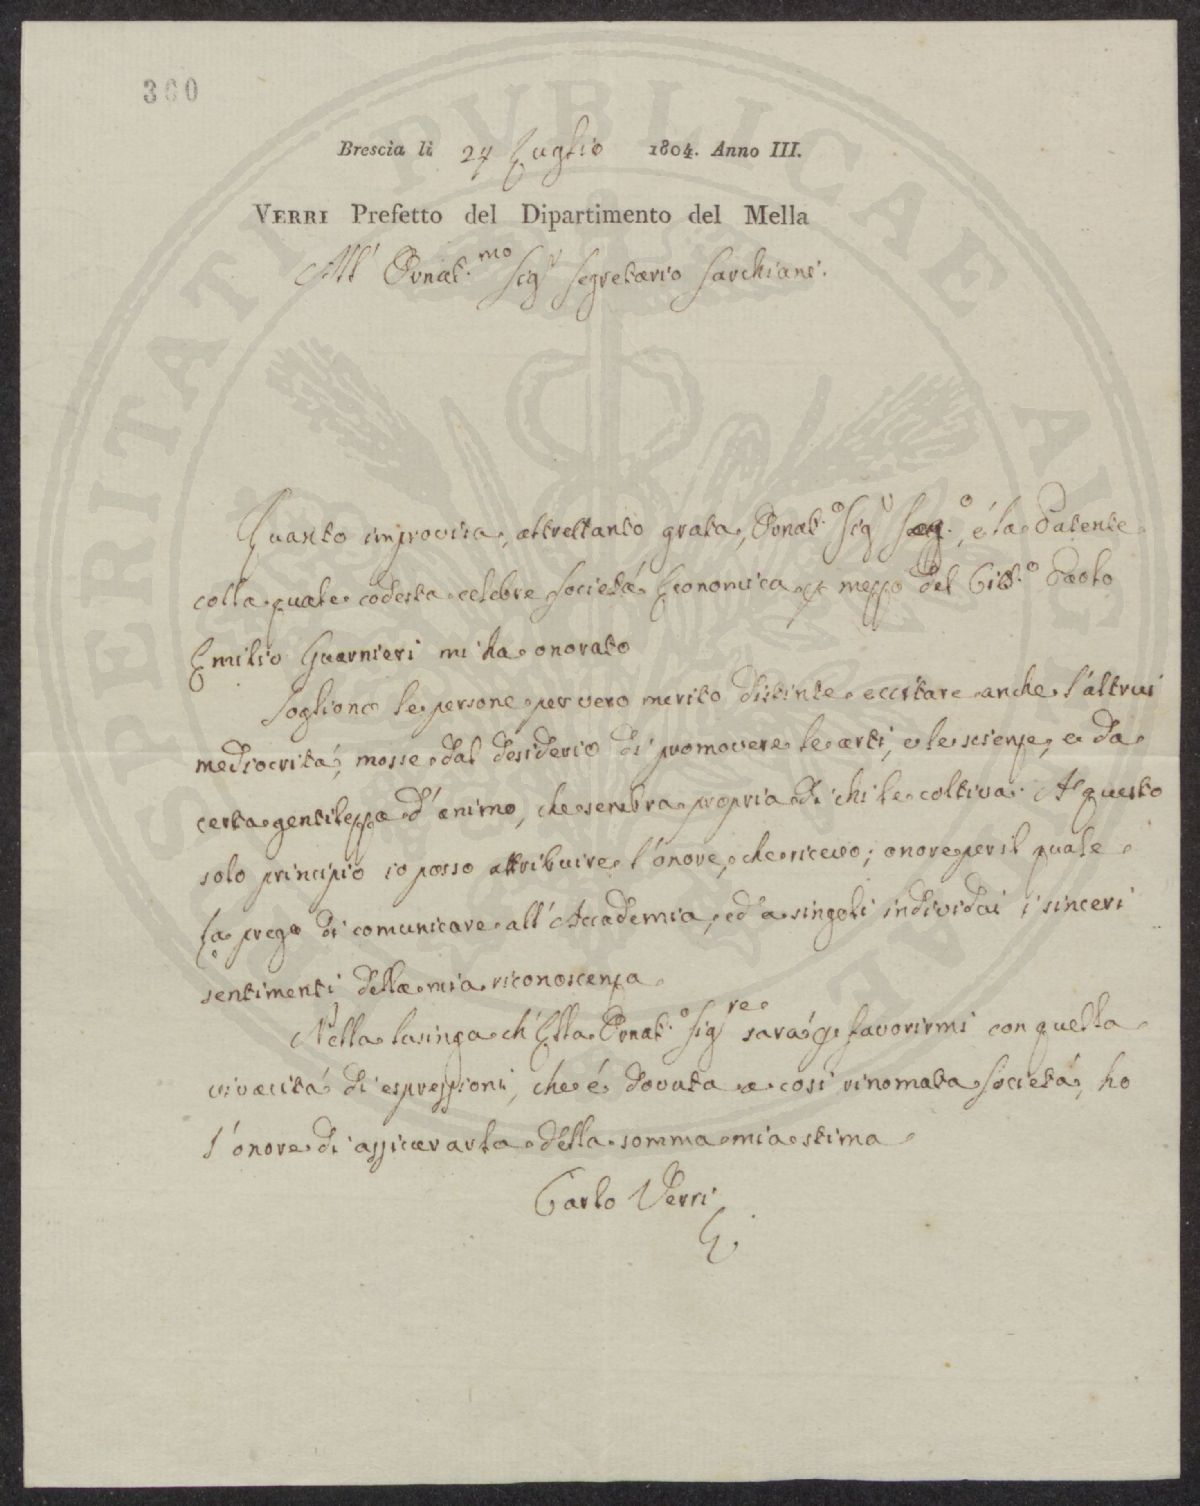 360
Brescia li 24 Luglio 1804. Anno III.
VERRI Prefetto del Dipartimento del Mella
All' Ornat.mo Sigr Segretario Sarchiani.
Quanto improvisa, altrettanto grata, Ornat.o Sigr Seg.o, é la Patente
colla quale codesta celebre Societá Economica p mezzo del Citt.o Paolo
Emilio Guarnieri mi ha onorato
Sogliono le persone per vero merito distinte eccitare anche l'altrui
mediocritá, mosse dal desiderio di promovere le arti, e le scienze, e da
certa gentilezza d'animo, che sembra propria di chi le coltiva. A questo
solo principio io posso attribuire l'onore, che ricevo; onore per il quale
La prego di comunicare all'Accademia, ed a singoli individui i sinceri
sentimenti della mia riconoscenza.
Nella lusinga ch'Ella Ornat.o Sigre sará p favorirmi con quella
vivacitá di espressioni, che é dovuta a cosi rinomata Societá, ho
l'onore di assicurarla della somma mia stima
Carlo Verri
PERITATI PVBLICAE AVG